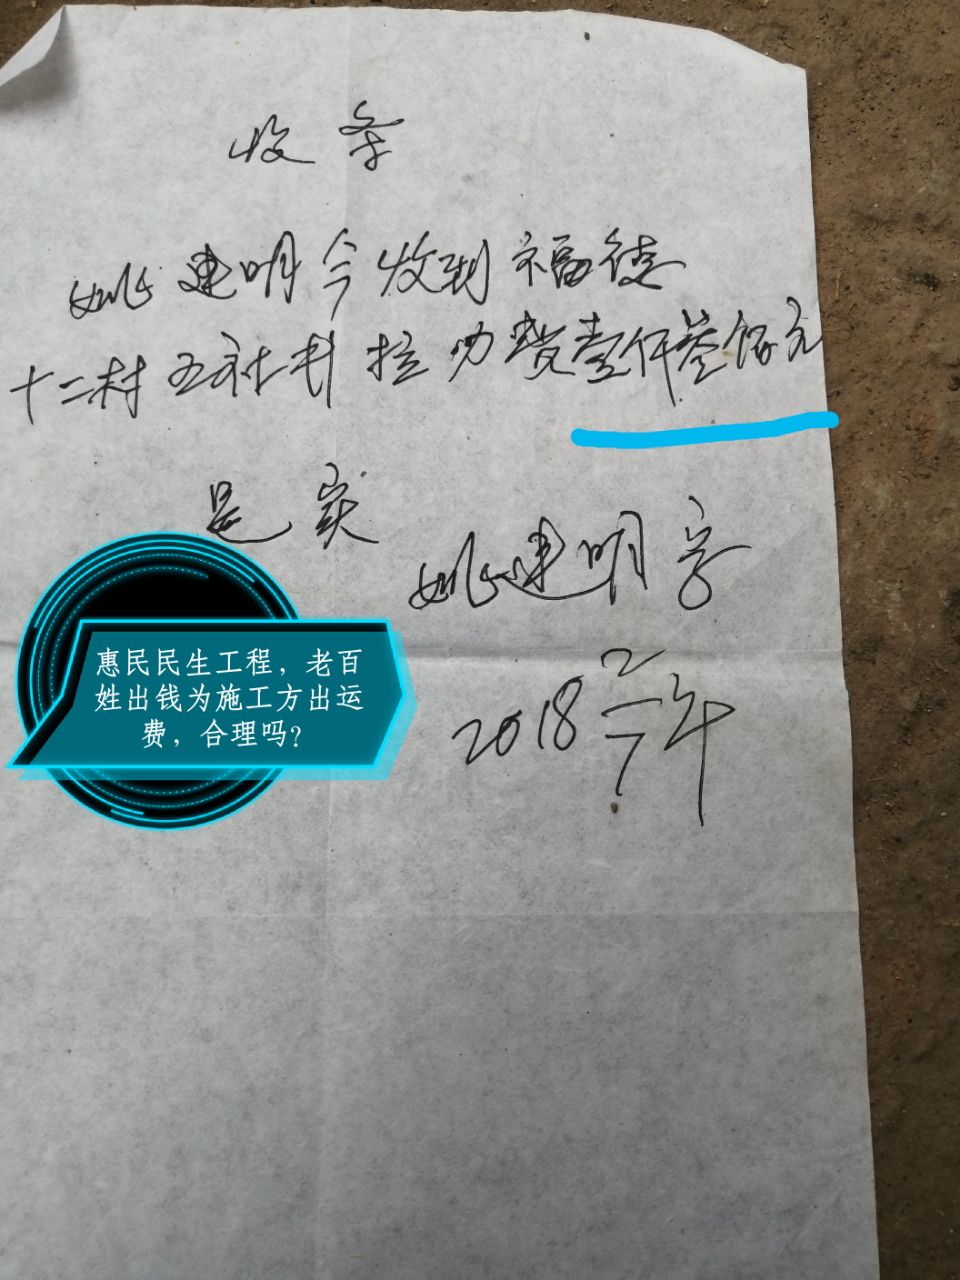 收条
姚建明今收到福德
十二村五社 拉 费壹仟叁佰元
是实
姚建明字
2018年
惠民民生工程，老百
姓出钱为施工方出运
费，合理吗？